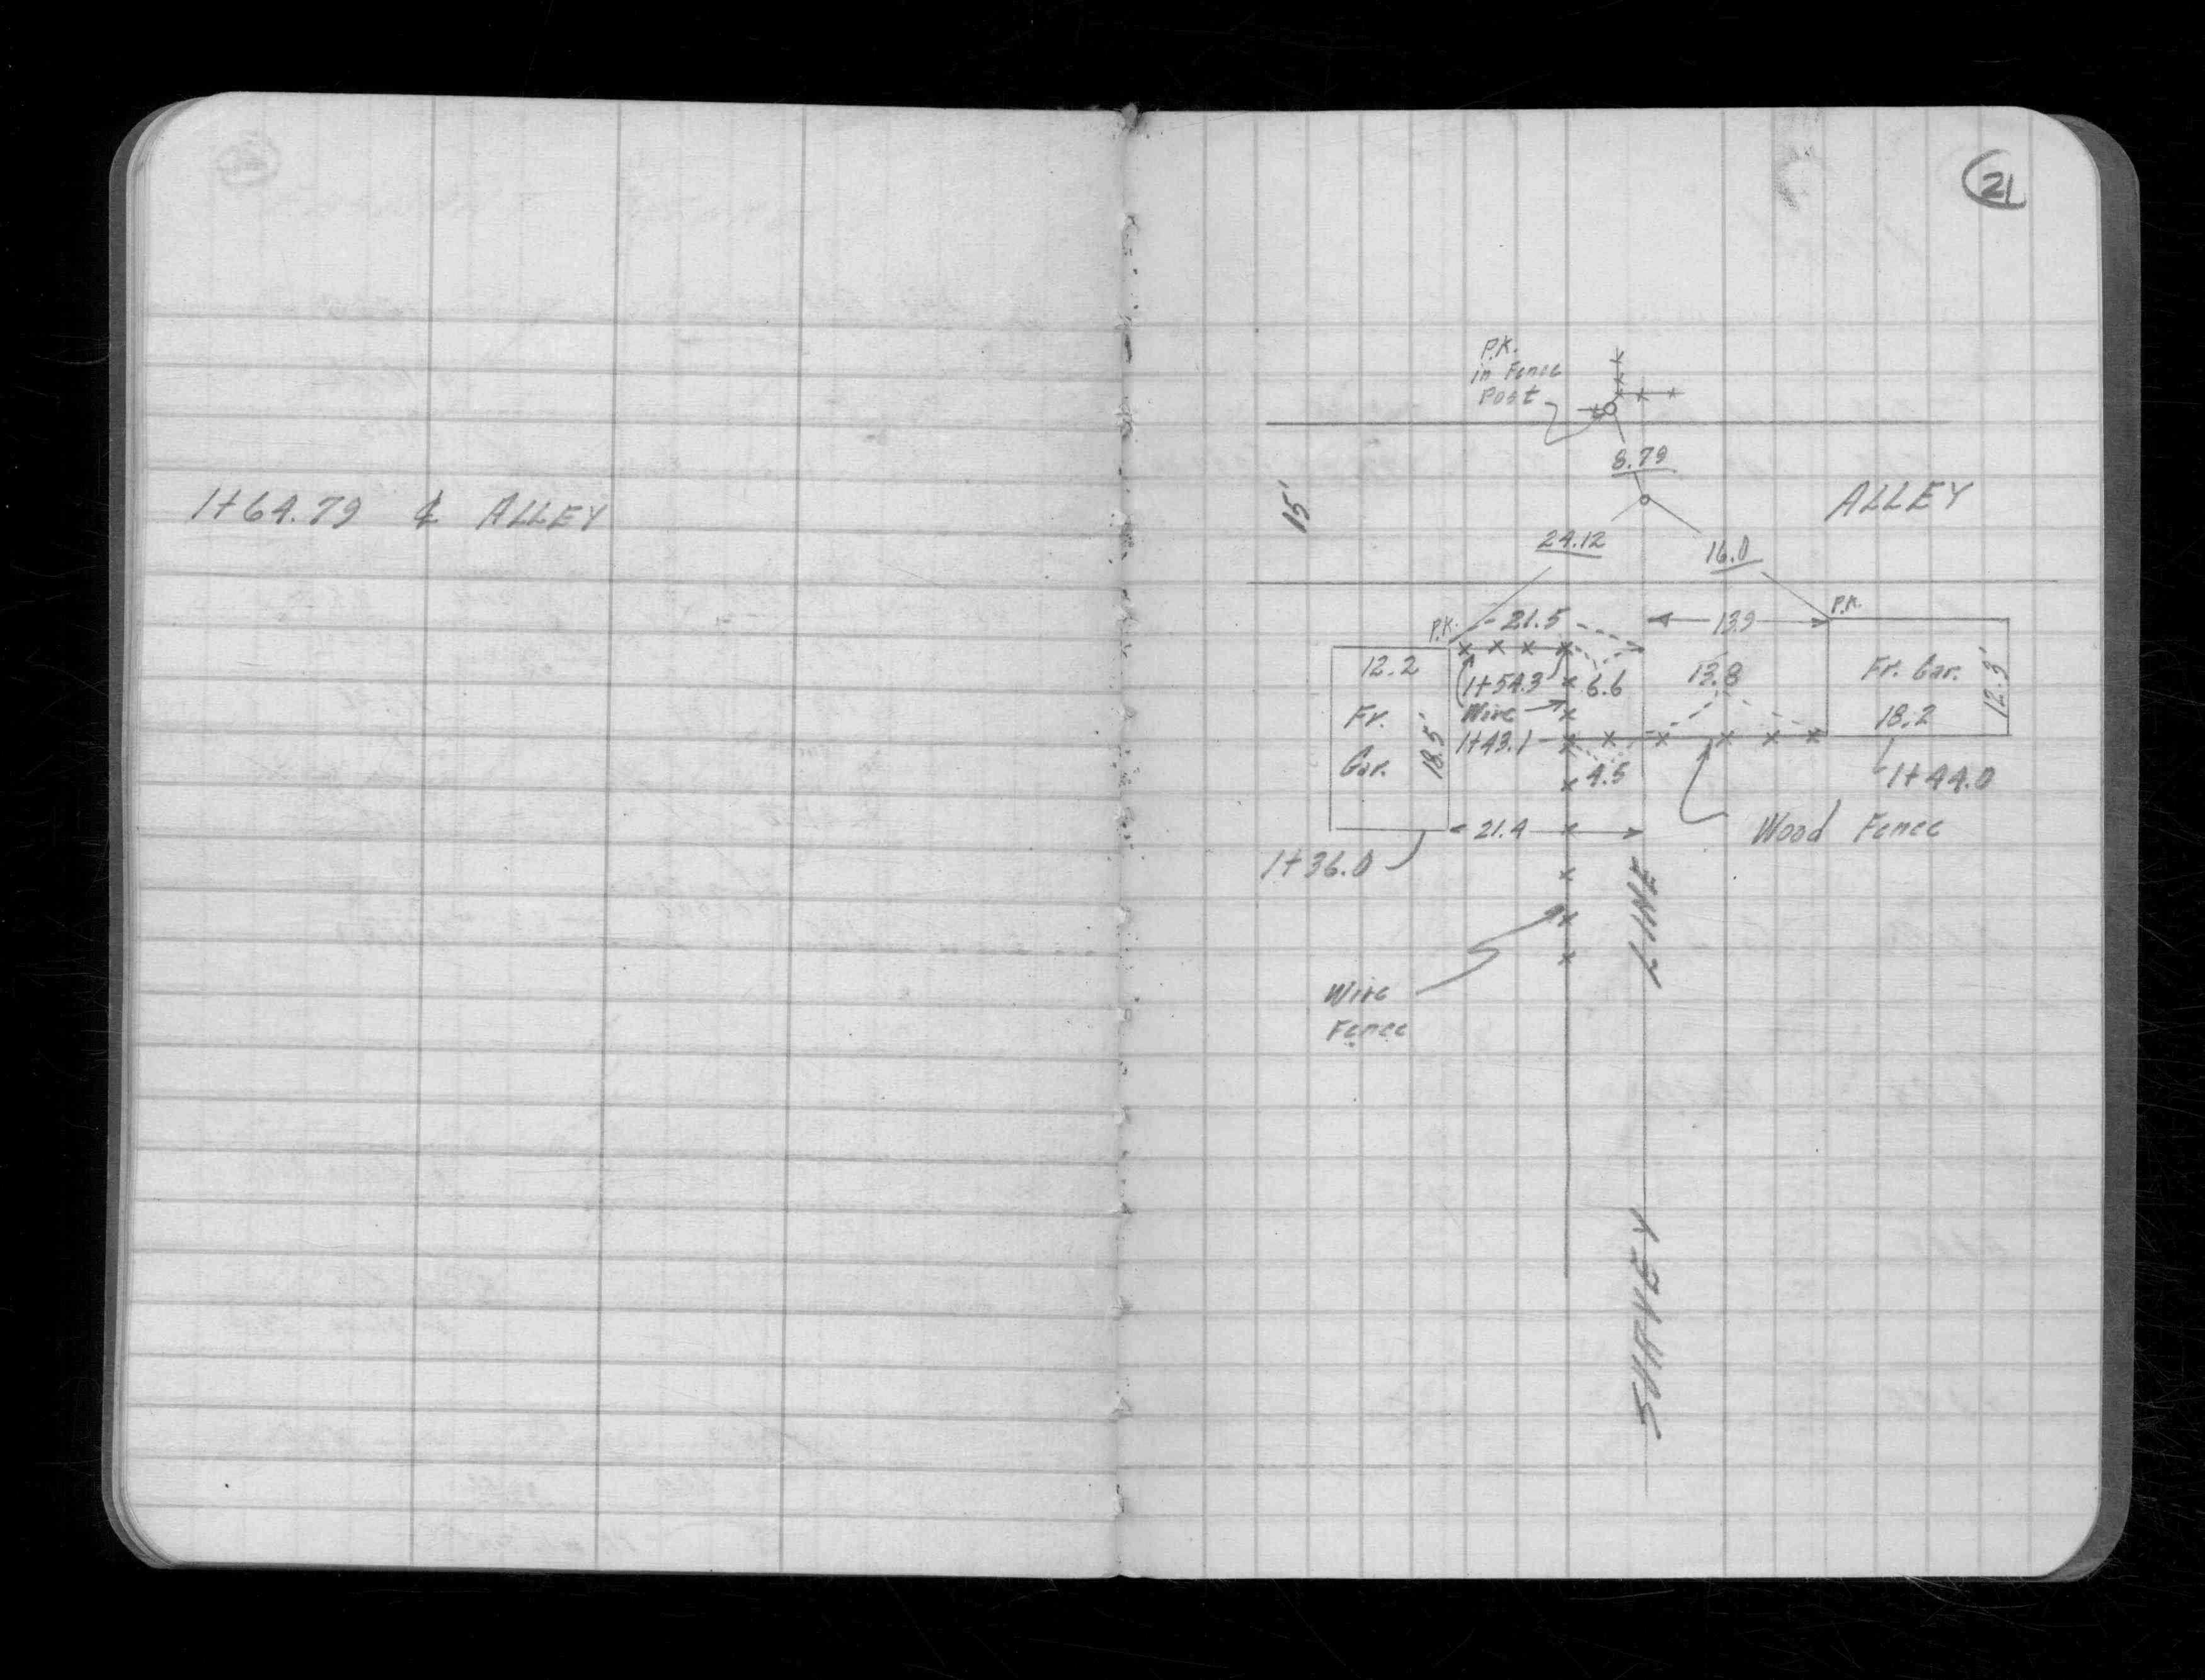 1+64.79 ℄ ALLEY
21
P.K.
in Fence
Post
8.79
15'
ALLEY
24.12
16.0
P.K.
21.5
13.9
P.K.
12.2
1+54.3
6.6
13.8
Fr. Gar.
12.3'
Wire
18.2
Fr.
Gar.
18.5'
1+43.1
4.5
1+44.0
21.4
Wood Fence
1+36.0
Wire
Fence
SURVEY LINE